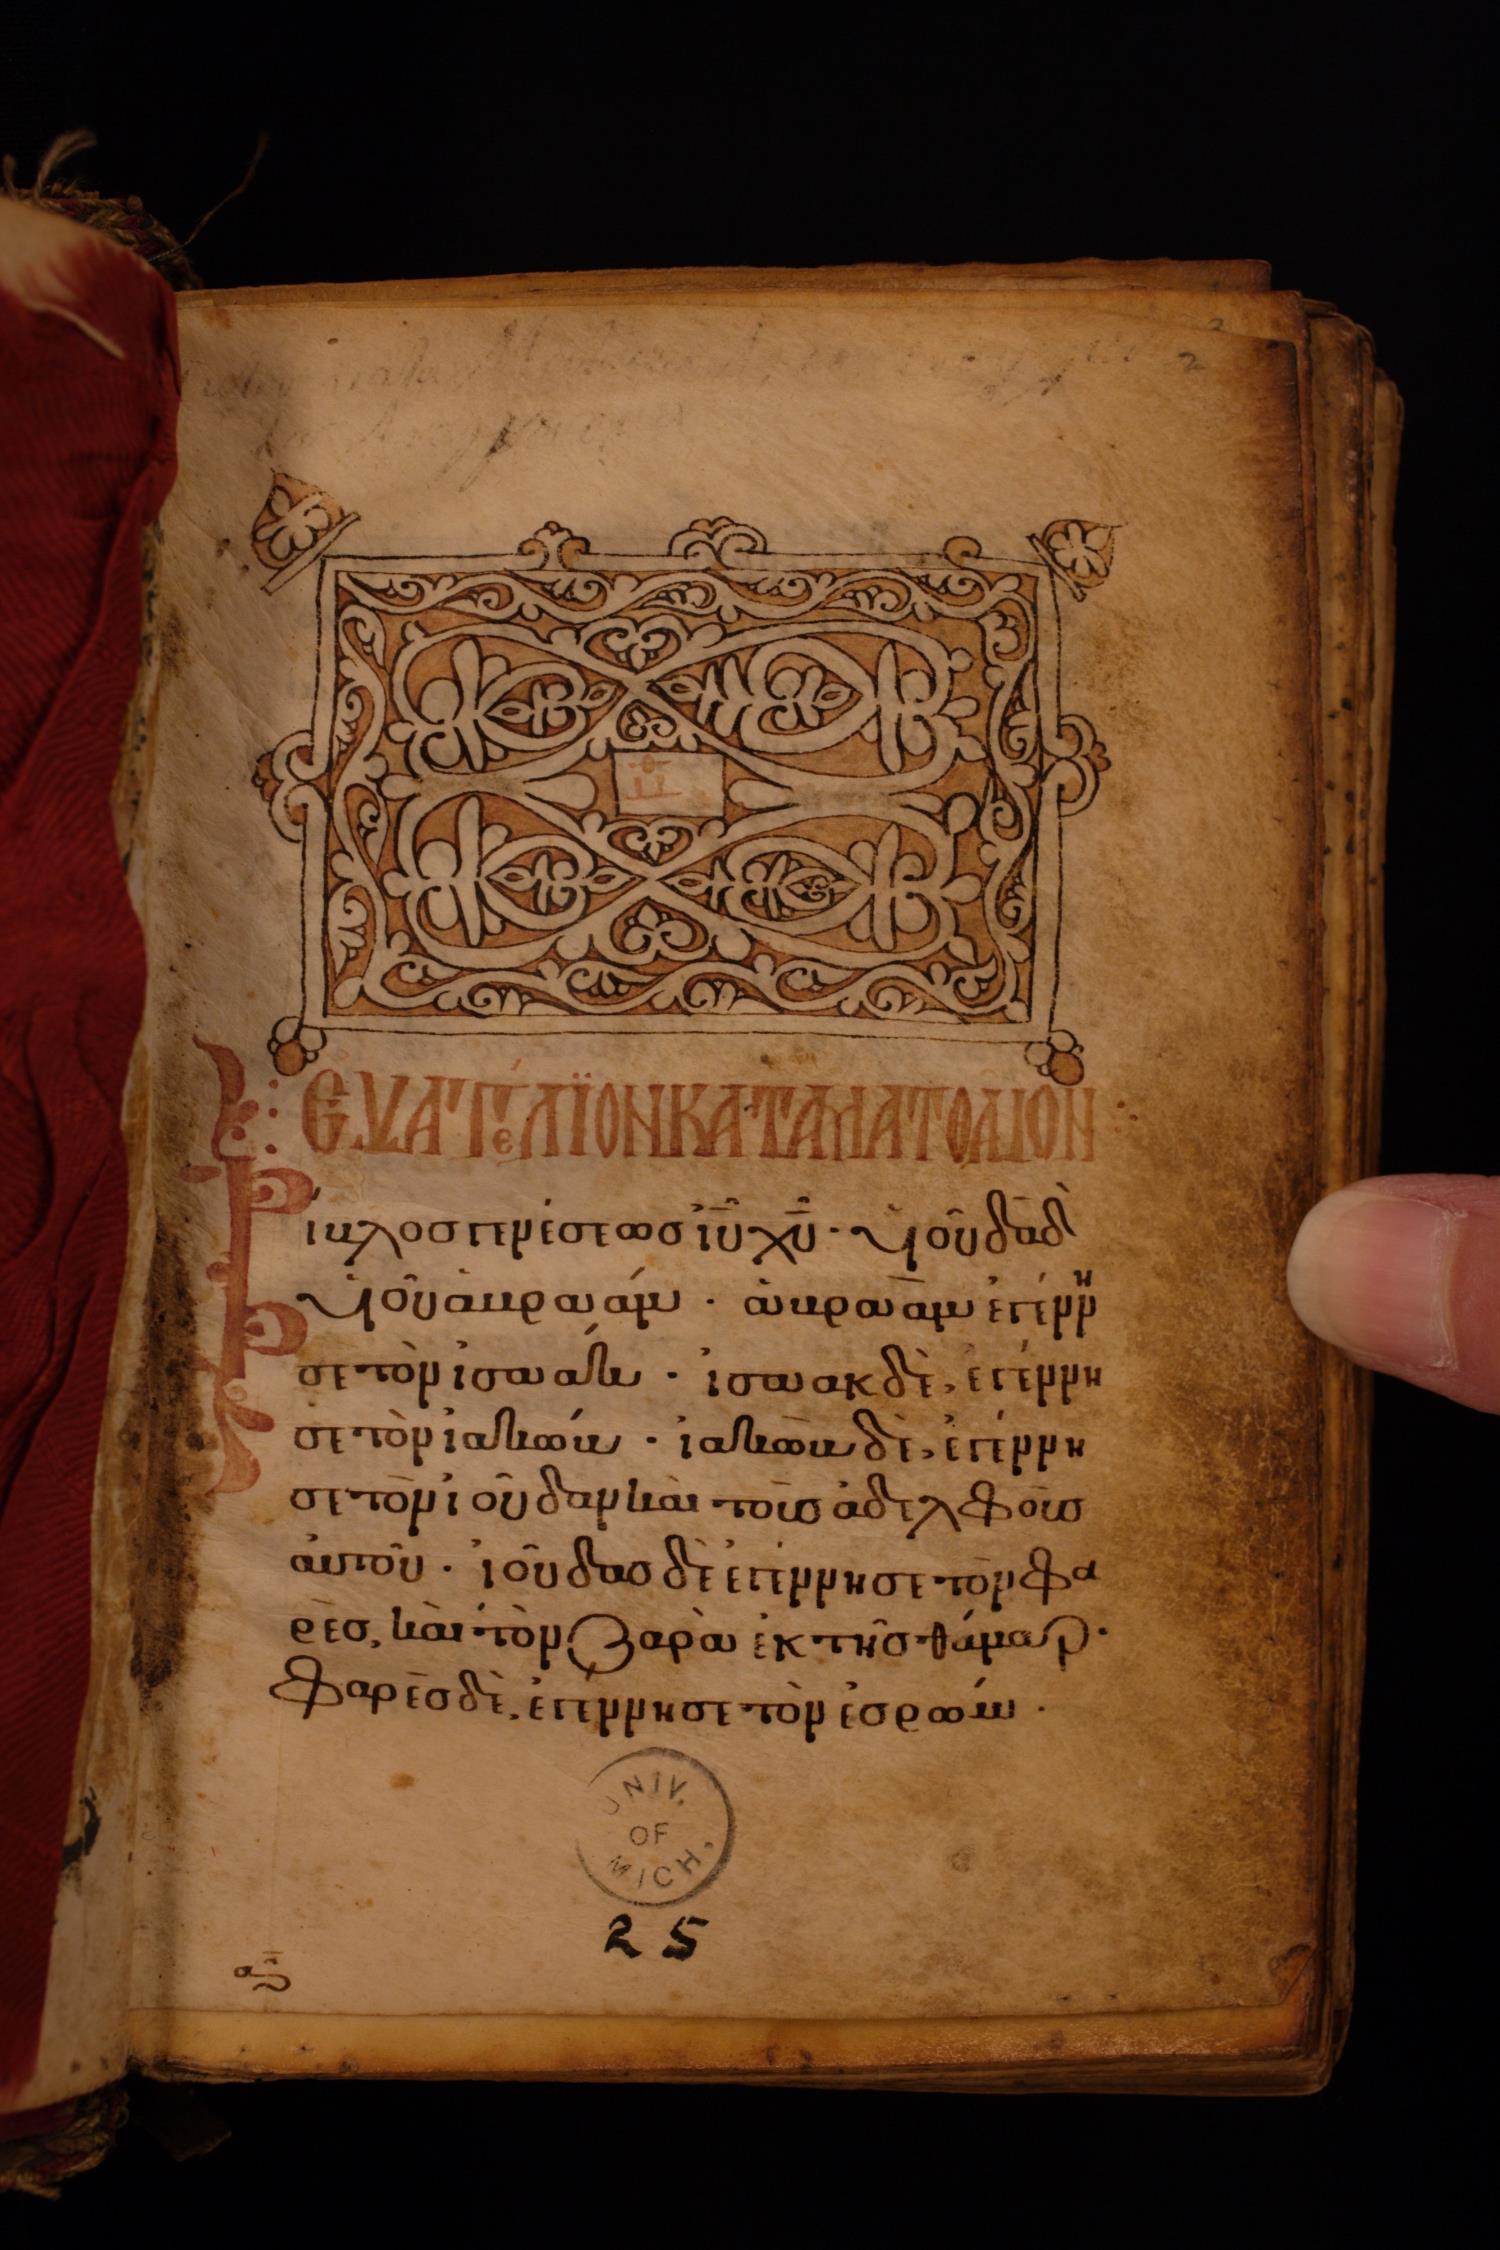 2
ΕΥΑΓΓΕΛΪΟΝ ΚΑΤΑ ΜΑΤΘΑΙΟΝ
Βίβλος γενέσεως ἰ̅υ̅ χ̅υ̅· ὑιοῦ δαδ
ὑιοῦ ἀβραάμ· ἀβραὰμ ἐγέννη
σε τὸν ἰσαάκ· ἰσαὰκ δὲ, ἐγέννη
σε τὸν ἰακώβ· ἰακὼβ δὲ, ἐγέννη
σε τὸν ἰούδαν καὶ τοὺς ἀδελφοὺς
αὐτοῦ· ἰούδας δὲ ἐγέννησε τὸν φα
ρὲς, καὶ τὸν Ζαρὰ ἐκ τῆς θάμαρ·
Φαρὲς δὲ, ἐγέννησε τὸν ἐσρώμ·
UNIV.
OF
MICH.
25